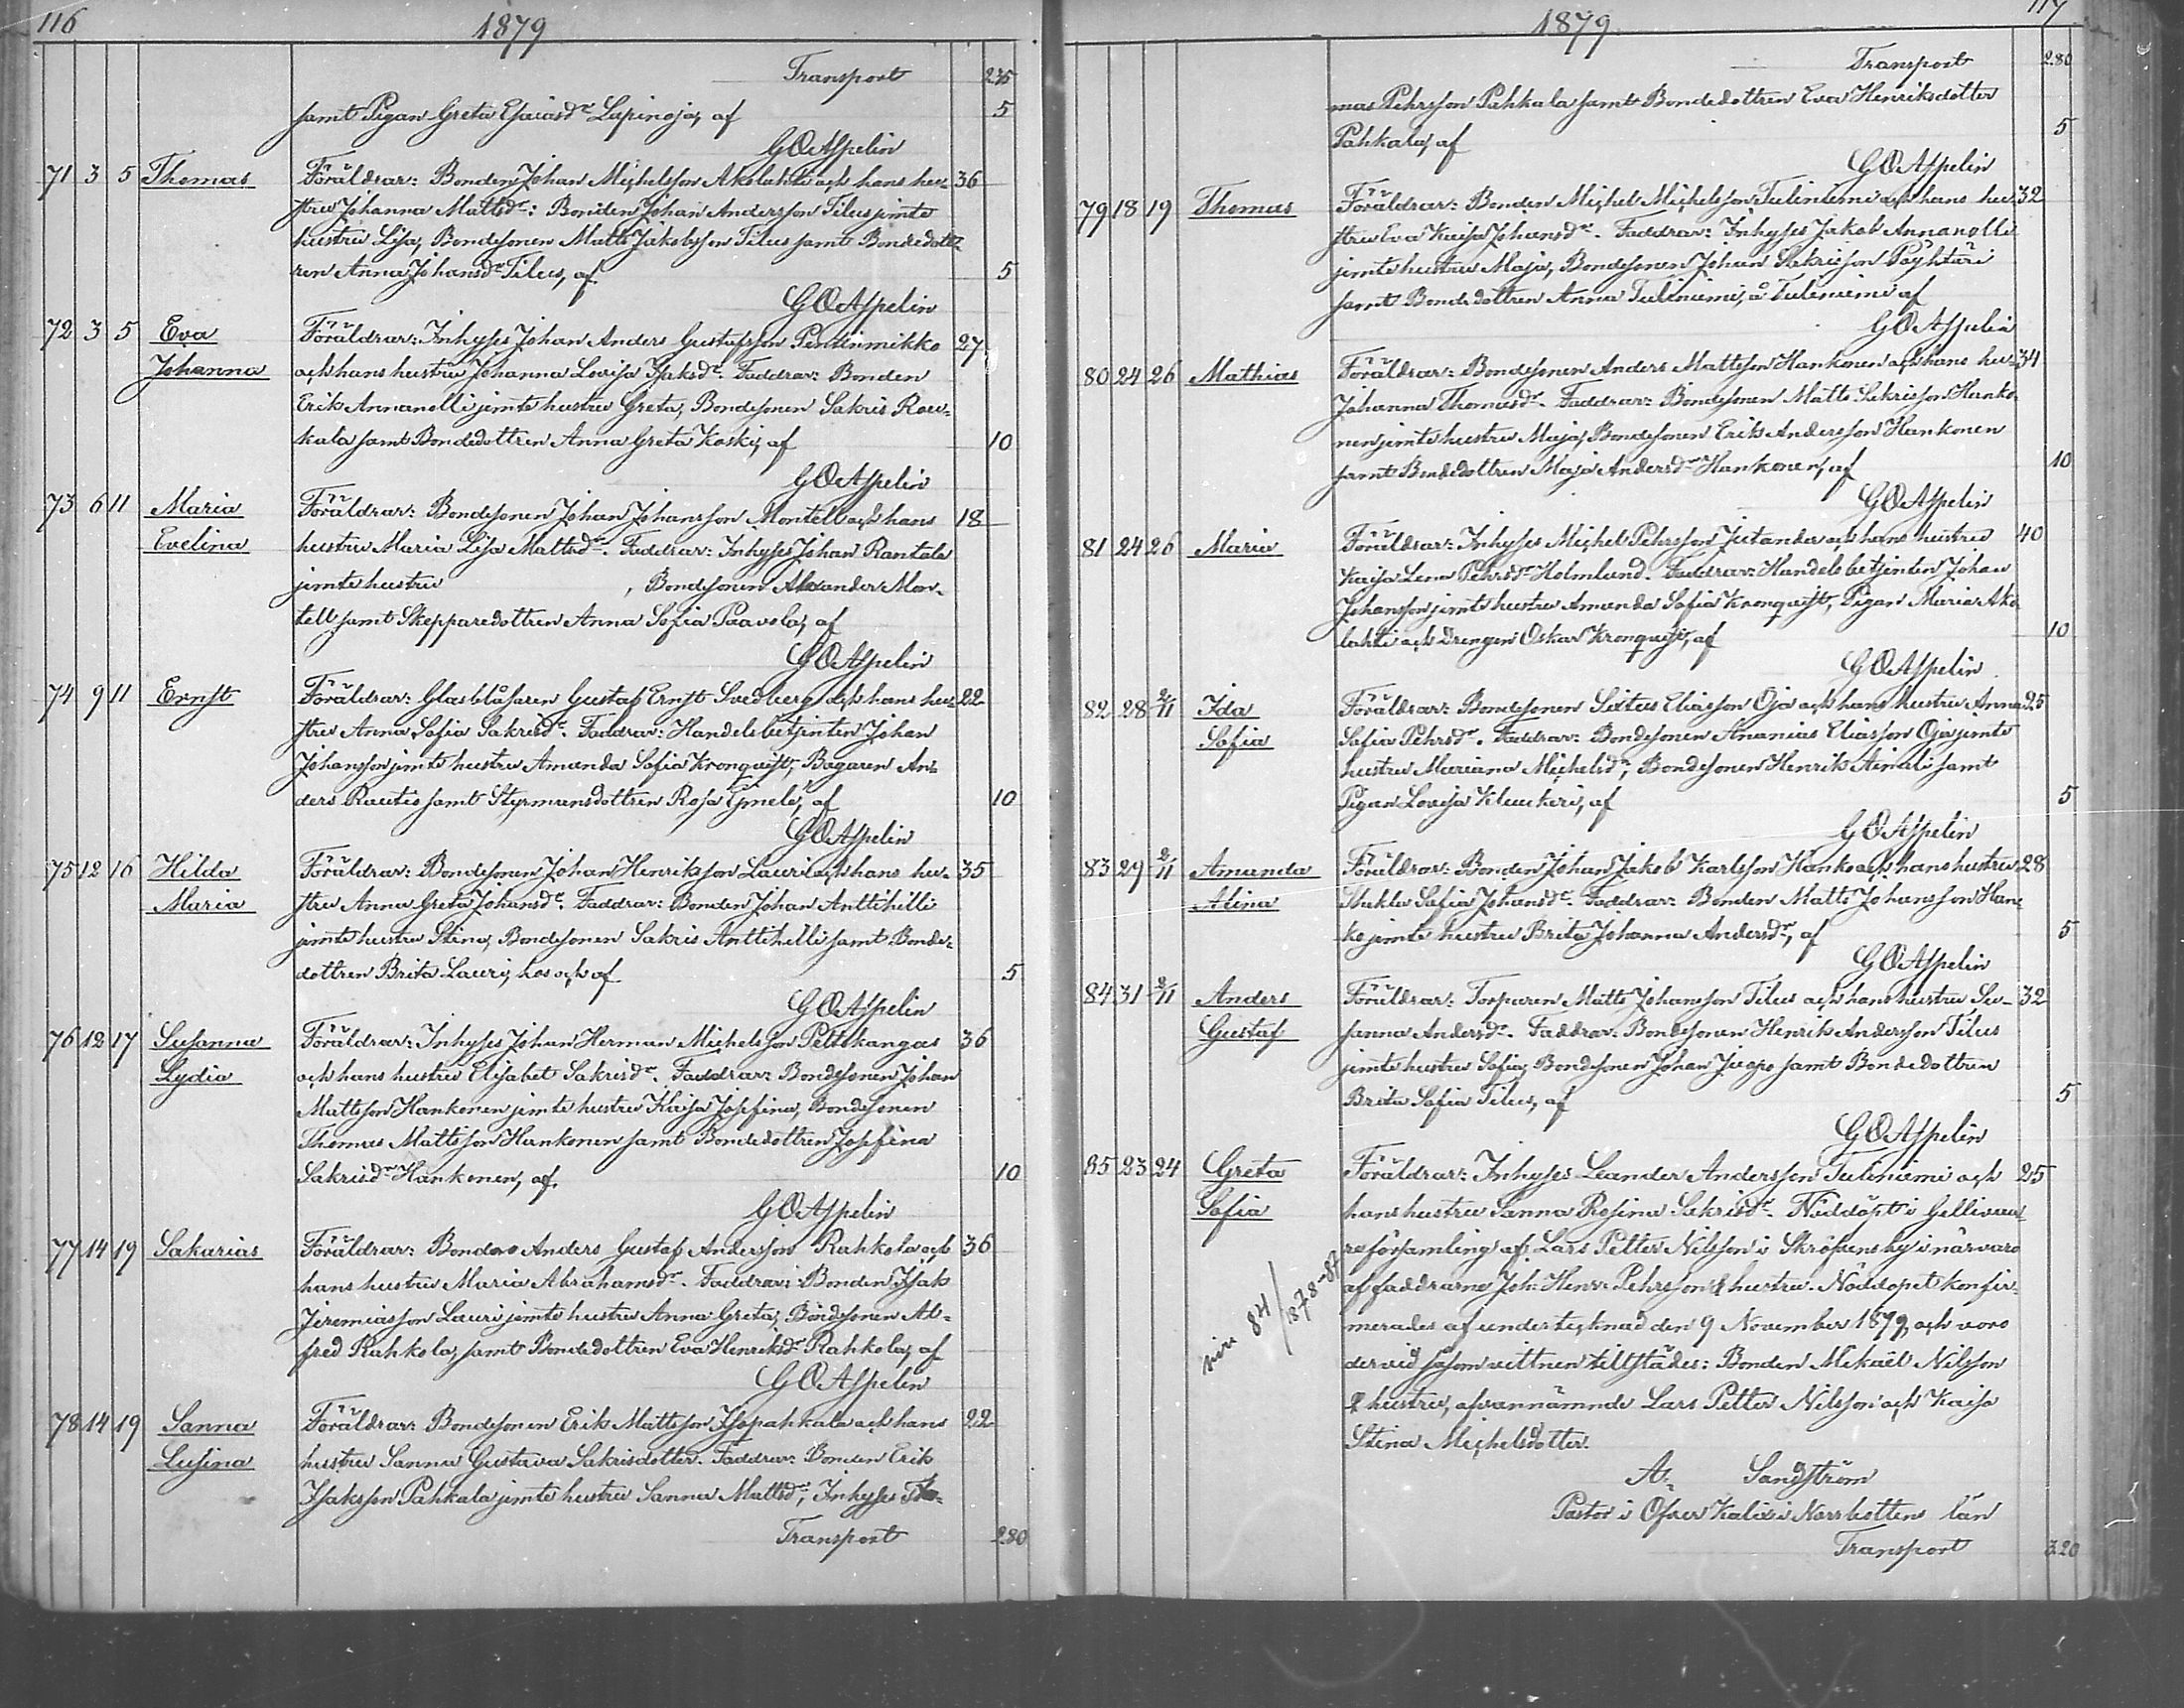 116
1879
Transport 235
samt Pigan Greta Esaiasdr Lapinoja, af 5
G O Appelin
71 3 5 Thomas Föräldrar: Bonden Johan Michelsson Akolahti och hans hu- 36
stru Johanna Mattsdr: Bonden Johan Andersson Tilus jemte
hustru Lisa, Bondesonen Matts Jakobsson Tilus samt Bondedott-
ren Anna Johansdr Tilus, af 5
G O Appelin
72 3 5 Eva Föräldrar: Inhyses Johan Anders Gustafsson Pentinmikko 27
Johanna och hans hustru Johanna Lovisa Isaksdr. Faddrar: Bonden
Erik Annanolli jemte hustru Greta, Bondesonen Sakris Rau-
kala samt Bondedottren Anna Greta Koski, af 10
G O Appelin
73 6 11 Maria Föräldrar: Bondesonen Johan Johansson Montell och hans 18
Evelina hustru Maria Lisa Mattsdr. Faddrar: Inhyses Johan Rantala
jemte hustru , Bondesonen Alexander Mon-
tell samt Skepparedottren Anna Sofia Paavola, af
G O Appelin
74 9 11 Ernst Föräldrar: Glasblåsaren Gustaf Ernst Svedberg och hans hu- 22
stru Anna Sofia Sakrisdr. Faddrar: Handelsbetjenten Johan
Johansson jemte hustru Amanda Sofia Kronquist, Bagaren An-
ders Rautio samt Styrmansdottren Rosa, af 10
G O Appelin
75 12 16 Hilda Föräldrar: Bondesonen Johan Henriksson Lauri och hans hu- 35
Maria stru Anna Greta Johansdr. Faddrar: Bonden Johan Anttihilli
jemte hustru Stina, Bondesonen Sakris Anttihilli samt Bonde-
dottren Brita Lauri, hos och af 5
G O Appelin
76 12 17 Susanna Föräldrar: Inhyses Johan Herman Michelsson Peltokangas 36
Lydia och hans hustru Elisabet Sakrisdr. Faddrar: Bondesonen Johan
Mattsson Hankonen jemte hustru Kaisa Josefina, Bondesonen
Thomas Mattsson Hankonen samt Bondedottren Josefina
Sakrisdr Hankonen, af 10
G O Appelin
77 14 19 Sakarias Föräldrar: Bonden Anders Gustaf Andersson Rahkola och 36
hans hustru Maria Abrahamsdr. Faddrar: Bonden Isak
Jeremiasson Lauri jemte hustru Anna Greta, Bondesonen Al-
fred Rahkola, samt Bondedottren Eva Henriksdr Rahkola, af
G O Appelin
78 14 19 Sanna Föräldrar: Bondesonen Erik Mattsson Isopahkala och hans 22
Lusina hustru Sanna Gustava Sakrisdotter. Faddrar: Bonden Erik
Isaksson Pahkala jemte hustru Sanna Mattsdr, Inhyses Tho-
Transport 280
117
1879
Transport 280
mas Pehrsson Pahkala samt Bondedottren Eva Henriksdotter
Pahkala, af 5
G O Appelin
79 18 19 Thomas Föräldrar: Bonden Michel Michelsson Tuliniemi och hans hu- 32
stru Eva Kaisa Johansdr. Faddrar: Inhyses Jakob Annanolli
jemte hustru Maja, Bondesonen Johan Sakrisson Pöyhtäri
samt Bondedottren Anna Tuliniemi, å Tuliniemi af
G O Appelin
80 24 26 Mathias Föräldrar: Bondesonen Anders Mattsson Hankonen och hans hu- 34
Johanna Thomasdr. Faddrar: Bondesonen Matts Sakrisson Hanko-
nen jemte hustru Maja, Bondesonen Erik Andersson Hankonen
samt Bondedottren Maja Andersdr Hankonen, af 10
G O Appelin
81 24 26 Maria Föräldrar: Inhyses Michel Pehrsson Jutander och hans hustru 40
Kaisa Lena Pehrsdr Holmlund. Faddrar: Handelsbetjenten Johan
Johansson jemte hustru Amanda Sofia Kronquist, Pigan Maria Ako-
lahti och Drengen Oskar Kronquist, af 10
G O Appelin
82 28 2/11 Ida Föräldrar: Bondesonen Sixtus Eliasson Oja och hans hustru Anna 25
Sofia Sofia Pehrsdr. Faddrar: Bondesonen Ananias Eliasson Oja jemte
hustru Mariana Michelsdr, Bondesonen Henrik Ainali samt
Pigan Lovisa Kluukeri, af 5
G O Appelin
83 29 2/11 Amanda Föräldrar: Bonden Johan Jakob Karlsson Hanko och hans hustru 28
Alina Thekla Sofia Johansdr. Faddrar: Bonden Matts Johansson Han-
ko jemte hustru Brita Johanna Andersdr, af 5
G O Appelin
84 31 2/11 Anders Föräldrar: Torparen Matts Johansson Tilus och hans hustru Su- 32
Gustaf sanna Andersdr. Faddrar: Bondesonen Henrik Andersson Tilus
jemte hustru Sofia, Bondesonen Johan Juopo samt Bondedottren
Brita Sofia Tilus, af 5
G O Appelin
85 23 24 Greta Föräldrar: Inhyses Leander Andersson Tuliniemi och 25
Sofia hans hustru Sanna Rosina Sakrisdr. Nöddöpt i Gellivaa-
ra församling af Lars Petter Nilsson i Skröfvens by i närvaro
af faddrarne Joh. Henr. Pehrsson & hustru. Nöddopet konfir-
merades af undertecknad den 9 November 1879, och voro
dervid såsom vittnen tillstädes: Bonden Mikaël Nilsson
& hustru, ofvannämnde Lars Petter Nilsson och Kaisa
Stina Michelsdotter.
84/1878-87
A. Sandström
Pastor i Öfver Kalix i Norrbottens län
Transport 320